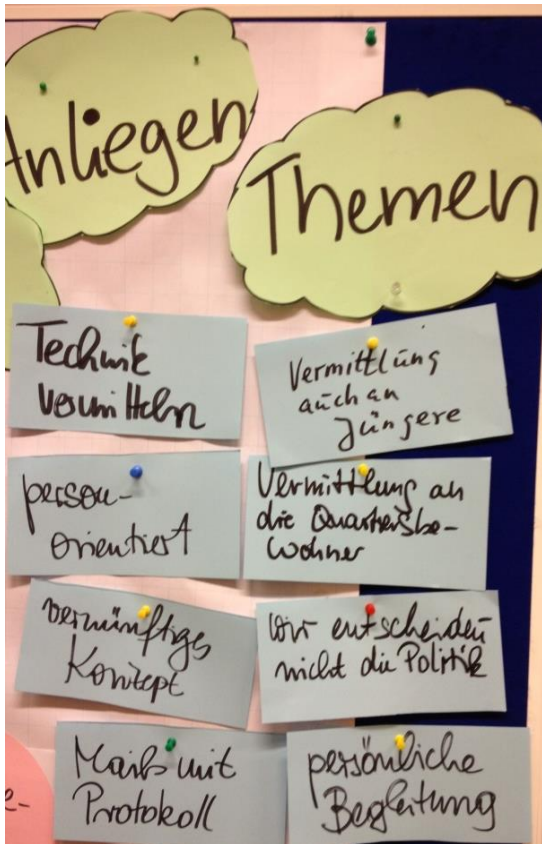 Anliegen
Themen
Technik
vermitteln
Vermittlung
auch an
Jüngere
person-
orientiert
Vermittlung an
die Quartiersbe-
wohner
vernünftiges
Konzept
wir entscheiden
nicht die Politik
Mails mit
Protokoll
persönliche
Begleitung
e-